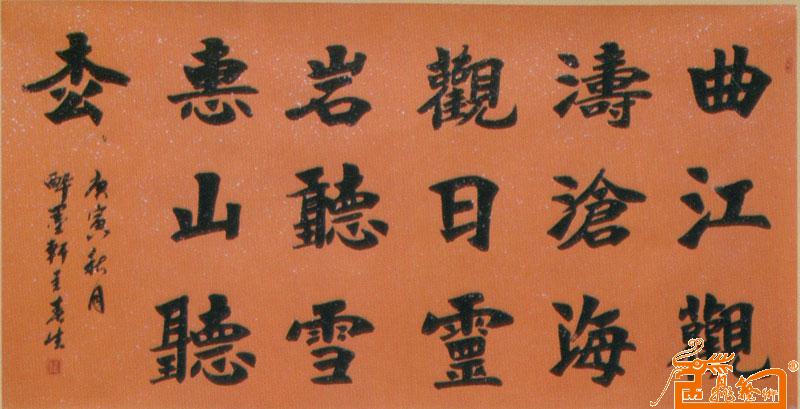 曲江觀
濤滄海
觀日靈
岩聽雪
惠山聽
枩
庚寅秋月
醉墨軒王春生